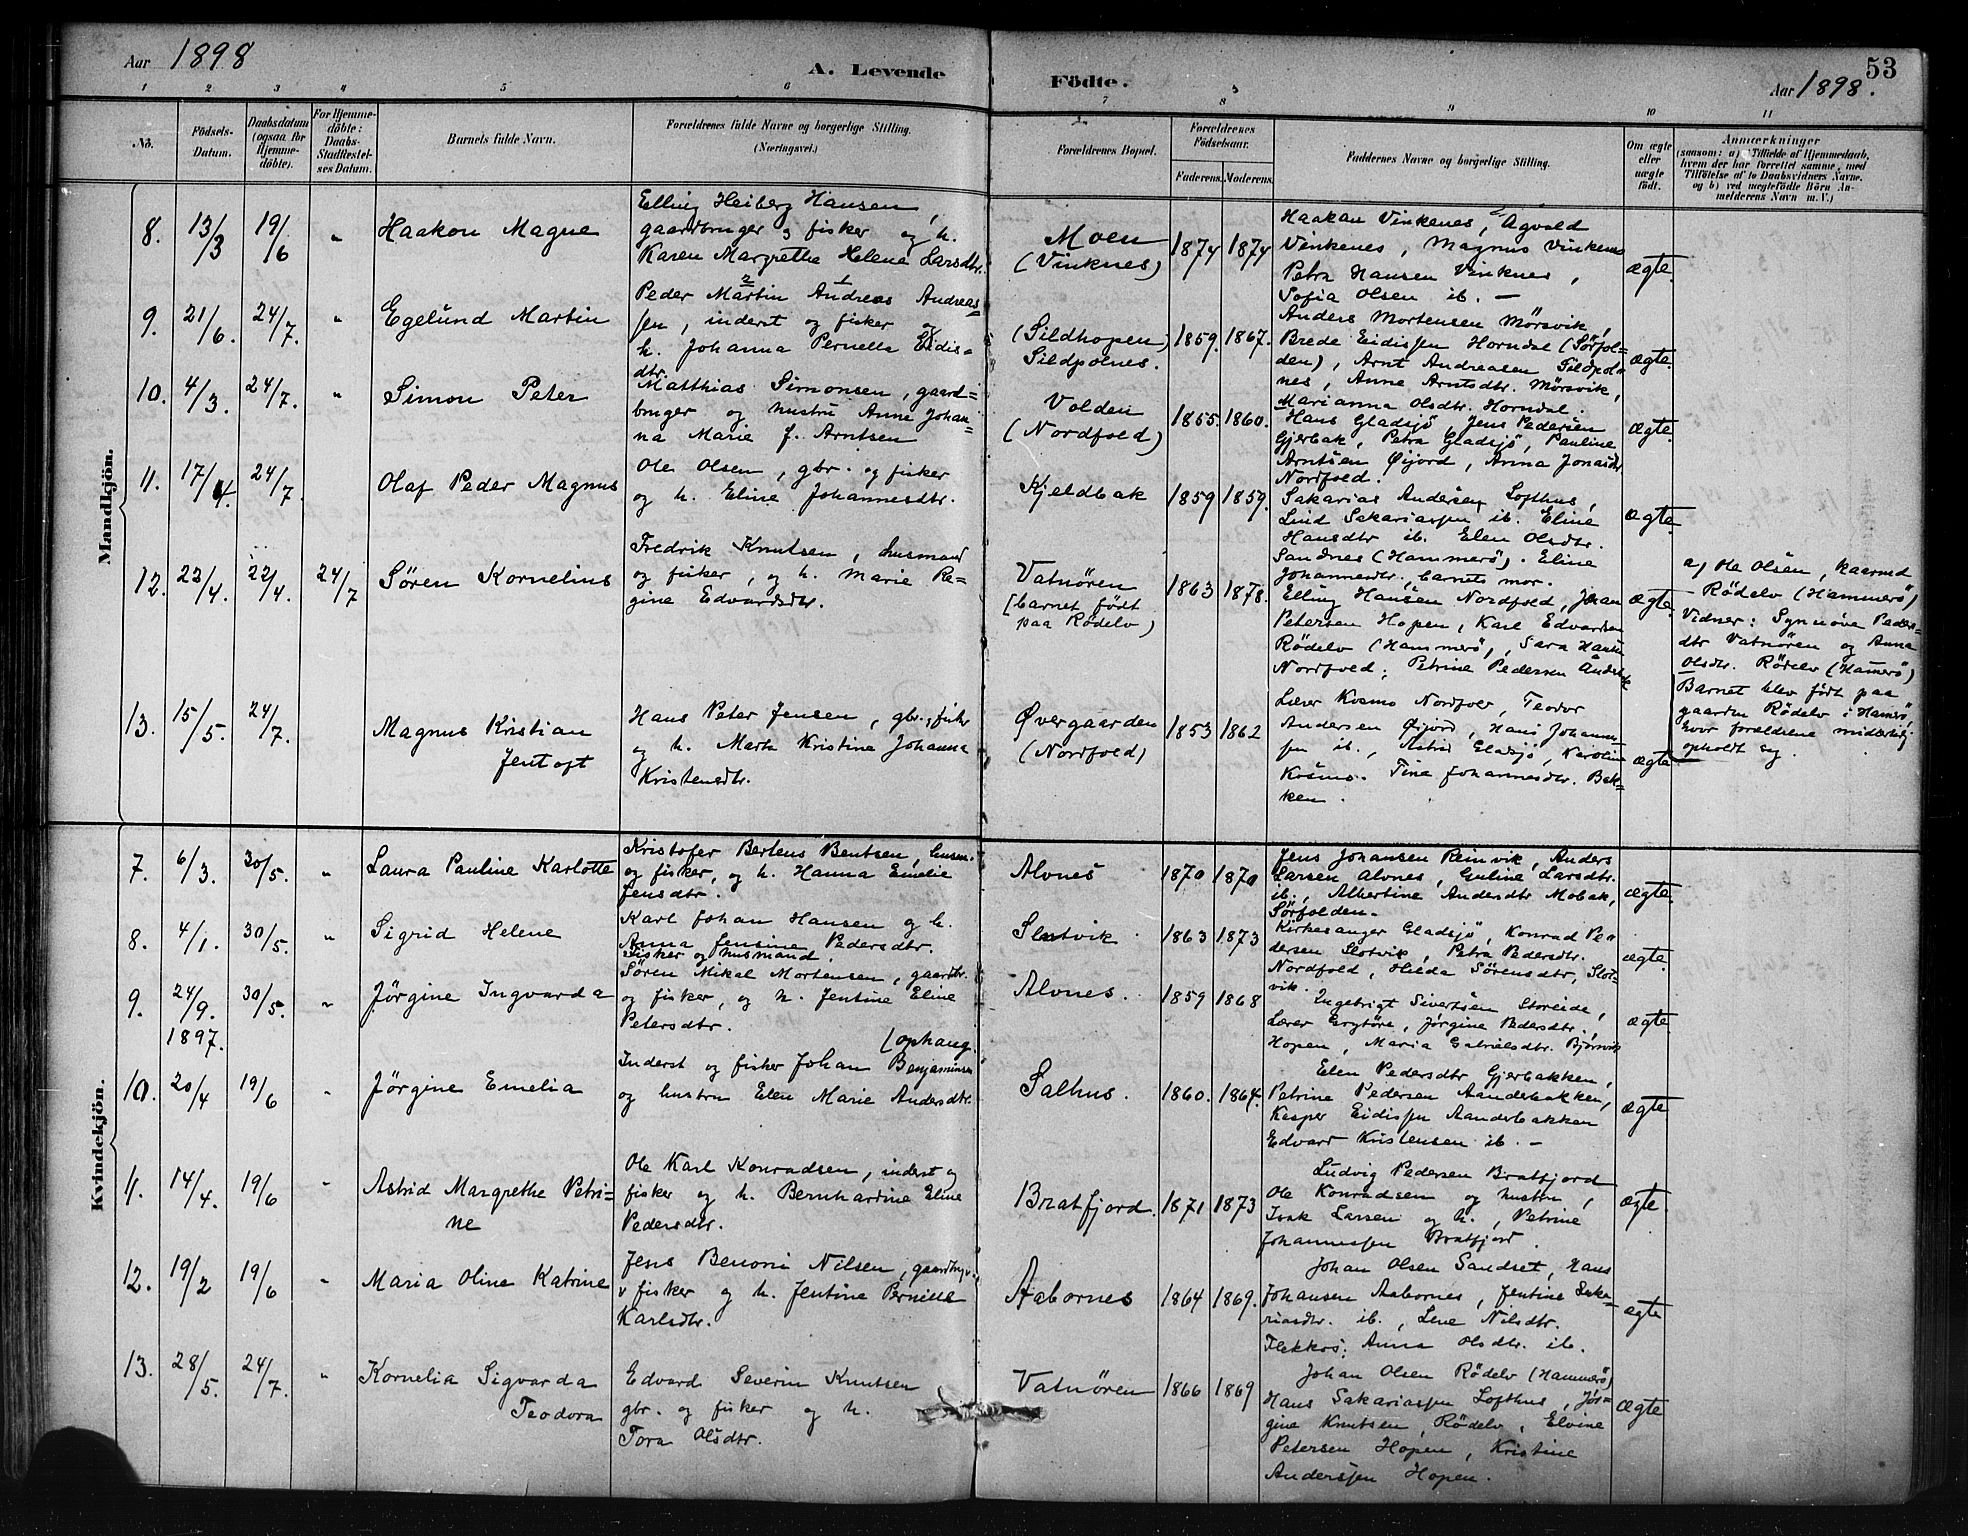 Aar 1898
A. Levende
Födte.
53
Aar 1898.
1 2 3 4 5 6 7 8 9 10 11
No.
Födsels-
Datum.
Daabsdatum
(ogsaa for
Hjemme-
döbte).
For Hjemme-
döbte:
Daabs-
Stadfæstel-
ses Datum.
Barnets fulde Navn.
Forældrenes fulde Navne og borgerlige Stilling.
(Næringsvei.)
Forældrenes Bopæl.
Forældrenes
Födselsaar.
Faderens. Moderens.
Faddernes Navne og borgerlige Stilling.
Om ægte
eller
uægte
födt.
Anmærkninger
(saasom: a) i Tilfælde af Hjemmedaab,
hvem der har forrettet samme, med
Tilföielse af to Daabsvidners Navne.
og b) ved uægtefödte Börn An-
melderens Navn m. V.)
Mandkjön.
8. 13/3 19/6 " Haakon Magne
Elling Heiberg Hansen,
gaardbruger & fisker og h.
Karen Margrethe Helene Larsdtr.
Moen
(Vinknes)
1874 1874
Haakan Vinkenes, Agvald
Vinkenes, Magnus Vinkenes
Petra Hansen Vinknes,
Sofia Olsen ib. —
ægte.
9. 21/6. 24/7. " Egelund Martin
Peder Martin Andreas Andreas
sen, inderst og fisker og
h. Johanna Pernella Eidis=
dtr.
(Sildhopen)
Sildpolnes.
1859. 1867.
Anders Mortensen Mörsvik,
Brede Eidissen Horndal (Sörfol-
den), Arnt Andreasen Sildpol=
nes, Anne Arntsdtr. Mörsvik,
Marianna Olsdtr. Horndal.
ægte.
10. 4/3. 24/7. " Simon Peter
Matthias Simonsen, gaard=
bruger og hustru Anne Johan=
na Marie f. Arntsen
Volden
(Nordfold)
1855. 1860.
Hans Gladsjö, Jens Pedersen
Gjerbak, Petra Gladsjö, Pauline
Arntsen Øijord, Anna Jonasdtr
Nordfold.
ægte.
11. 17/4. 24/7. Olaf Peder Magnus
Ole Olsen, gbr. og fisker
og h. Eline Johannesdtr.
Kjeldbak
1859 1859.
Sakarias Andersen Lofthus,
Lind Sakariassen ib. Eline
Hansdtr ib. Elen Olsdtr.
Sandnes (Hammerö). Eline
Johannesdtr., barnets mor.
ægte.
12. 22/4. 22/4. 24/7 Sören Kornelius
Fredrik Knutsen, husmand
og fisker, og h. Marie Re-
gine Edvardsdtr.
Vatnören
(barnet födt
paa Rödelv)
1863 1878.
Elling Hansen Nordfold, Johan
Petersen Hopen, Karl Edvardsen
Rödelv (Hammerö), Sara Hansen
Nordfold; Petrine Pedersen
ægte.
a) Ole Olsen, kaarmd
Rödelv (Hammerö)
Vidner: Synnöve Peders-
dtr Vatnören og Anna
Olsdtr. Rödelv (Hamerö)
Barnet blev födt paa
gaarden Rödelv i Hamerö,
hvor forældrene midlertidig
opholdt sig.
13. 15/5. 24/7. Magnus Kristian
Jentoft
Hans Peter Jensen, gbr. & fisker
og h. Marth Kristine Johanna
Kristensdtr.
Øvergaarden
(Nordfold)
1853 1862
Lærer Kosmo Nordfold, Teodor
Andersen Øijord, Hans Johann-
sen ib., Astrid Gladsjö, Karoline
Kosmo. Tina Johannesdtr. Bak=
ken.
ægte
Kvindekjön.
7. 6/3. 30/5. " Laura Pauline Karlotte
Kristofer Bertens Bentsen, husm.
og fisker, og h. Hanna Emelie
Jensdtr.
Alvnes
1870 1870
Jens Johansen Reinvik, Anders
Larsen Alvnes, Guline Larsdtr.
ib., Albertine Andersdtr Mobak,
Sörfolden.
ægte.
8. 4/1. 30/5. " Sigrid Helene
Karl Johan Hansen og h.
Anna Jensine Pedersdtr.
Fisker og husmand.
Slotvik
1863 1873
Kirkesanger Gladsjö, Konrad Pe=
dersen Slotvik, Petra Pedersdtr.
Nordfold, Hilda Sörensdtr, Slot-
vik.
ægte.
9. 24/9. 1897. 30/5. " Jörgine Ingvarda
Sören Mikal Mortensen, gaardbr.
og fisker, og h. Jentine Eline
Petersdtr.
Alvnes.
1859 1868
Ingebrigt Sivertsen Storeide,
Lærer Grytöre, Jörgine Pedersdtr.,
Hopen, Maria Gabrielsdtr. Bjørnvik
ægte
10. 20/4 19/6 " Jörgine Emelia
(ophang.
Inderst og fisker Johan Benjaminsen
og hustru Elen Marie Andersdtr.
Salhus.
1860. 1864.
Elen Pedersdtr Gjerbakken,
Petrine Pedersen Aanderbakken,
Kasper Eidissen Aanderbakken
Edvard Kristensen ib. —
ægte
11. 14/4. 19/6 " Astrid Margrethe Petri=
ne
Ole Karl Konradsen, inderst og
fisker og h. Bernhardine Eline
Pedersdtr.
Bratfjord.
1871 1873
Ludvig Pedersen Bratfjord
Ole Konradsen og hustru,
Isak Larsen og h., Petrine
Johannessen Bratfjord.
ægte.
12. 19/2 19/6 " Maria Oline Katrine
Jens Benoni Nilsen, gaardbrug.
& fisker og h. Jentine Pernille
Karlsdtr.
Aabornes
1864 1869.
Johan Olsen Sandset, Hans
Johansen Aabornes, Jentine Saka-
riasdtr. ib., Lene Nilsdtr.
Flekkos; Anna Olsdtr. ib.
ægte
13. 28/5. 24/7. " Kornelia Sigvarda
Teodora
Edvard Severin Knutsen
gbr. og fisker og h.
Tora Olsdtr.
Vatnören
1866 1869
Johan Olsen Rödelv (Hammerö)
Hans Sakariassen Lofthus, Jör-
gine Knutsen, Rödelv, Elvine
Petersen Hopen, Kristine
Anderssen Hopen.
ægte